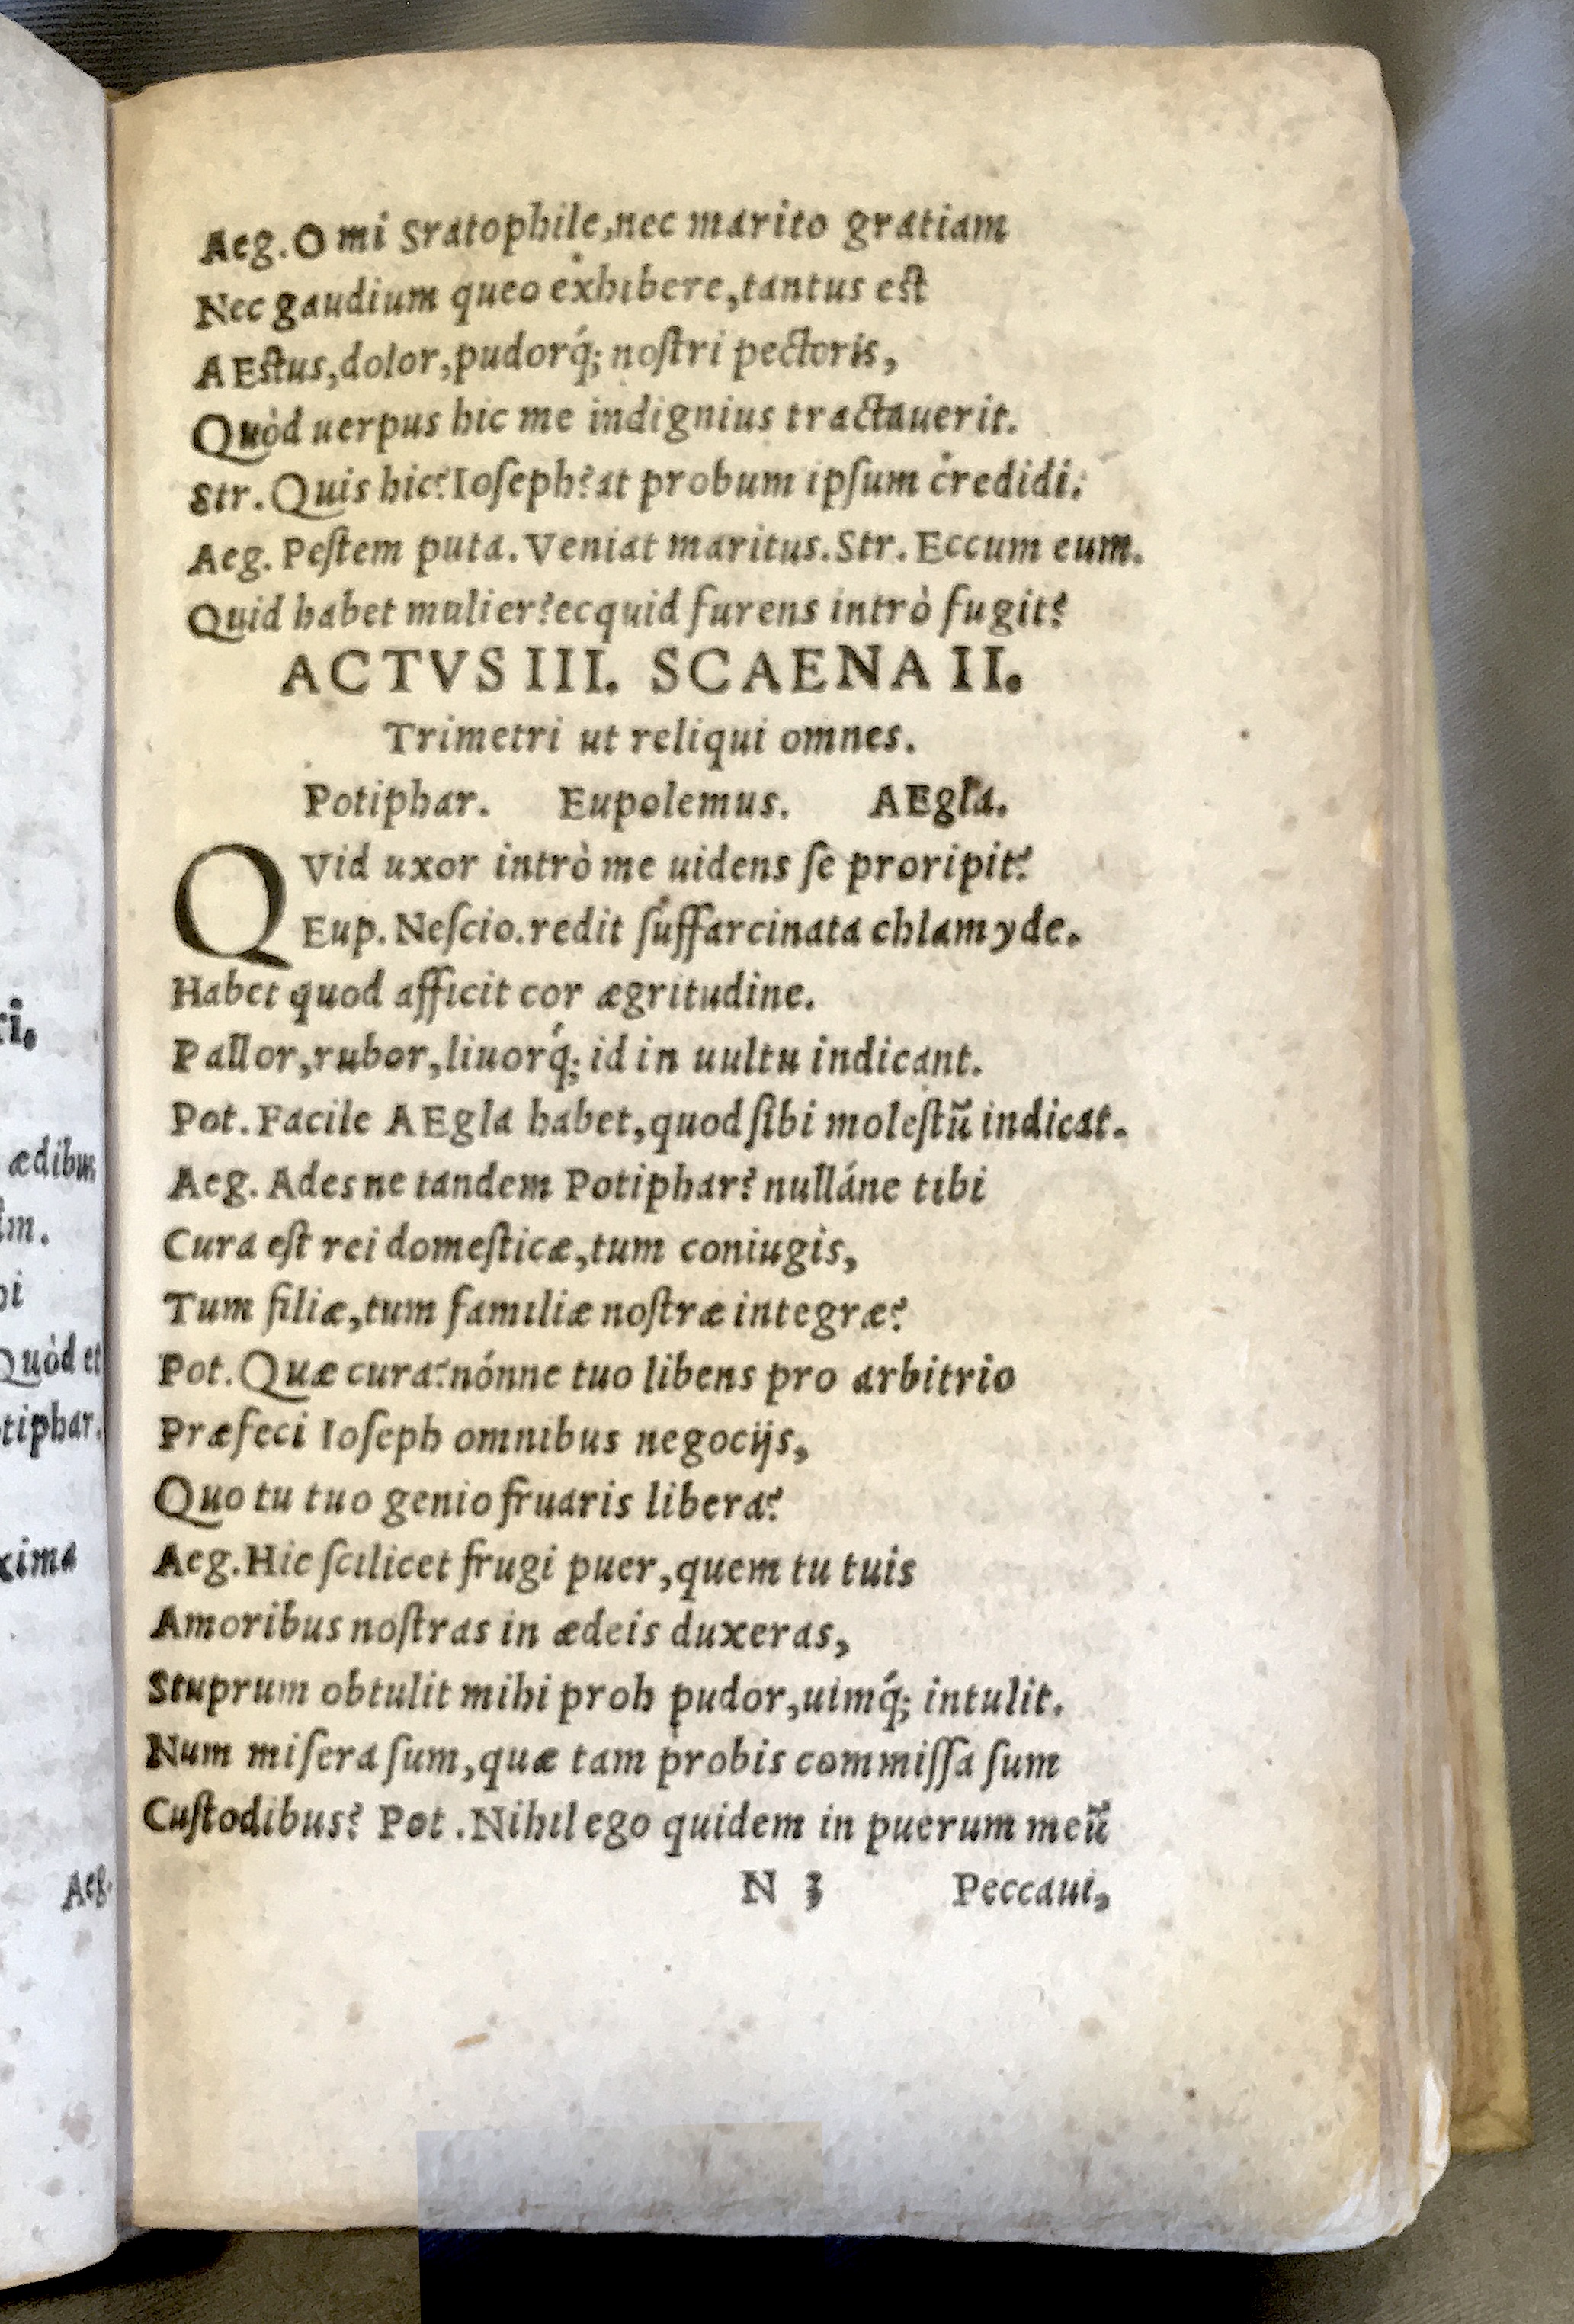 Aeg. O mi Sratophile, nec marito gratiam
Nec gaudium queo exhibere, tantus est
AEstus, dolor, pudorq́; noſtri pectoris,
Quòd uerpus hic me indignius tractauerit.
Str. Quis hic? Ioſeph? at probum ipſum credidi.
Aeg. Peſtem puta. Veniat maritus. Str. Eccum eum.
Quid habet mulier? ecquid furens intrò fugit?
ACTVS III. SCAENA II.
Trimetri ut reliqui omnes.
Potiphar. Eupolemus. AEgla.
QVid uxor intrò me uidens ſe proripit?
Eup. Neſcio. redit ſuffarcinata chlamyde.
Habet quod afficit cor ægritudine.
Pallor, rubor, liuorq́; id in uultu indicant.
Pot. Facile AEgla habet, quod ſibi moleſtũ indicat.
Aeg. Adesne tandem Potiphar? nulláne tibi
Cura eſt rei domeſticæ, tum coniugis,
Tum filiæ, tum familiæ noſtræ integræ?
Pot. Quæ cura? nónne tuo libens pro arbitrio
Præfeci Ioſeph omnibus negocijs,
Quo tu tuo genio fruaris libera?
Aeg. Hic ſcilicet frugi puer, quem tu tuis
Amoribus noſtras in ædeis duxeras,
Stuprum obtulit mihi proh pudor, uimq́; intulit.
Num miſera ſum, quæ tam probis commiſſa ſum
Cuſtodibus? Pot. Nihil ego quidem in puerum meũ
N 3 Peccaui,
ri.
ædibus
im.
Quòd et
tiphar.
xima
Aeg.